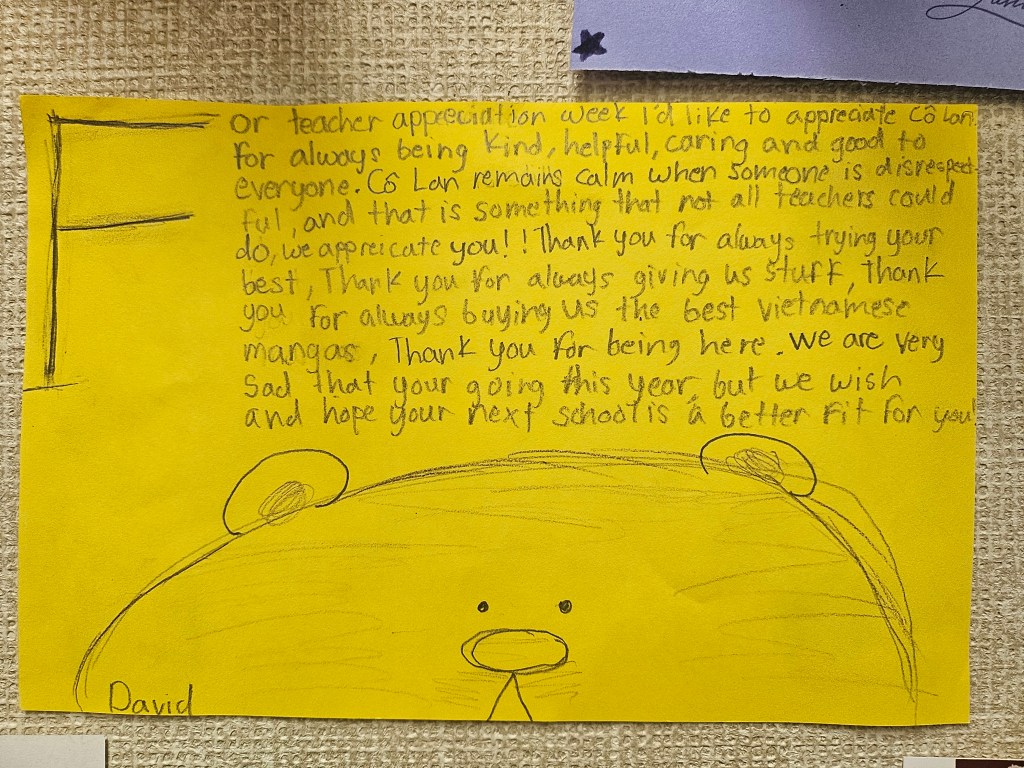 For teacher appreciation week I'd like to appreciate Cô Lan
for always being kind, helpful, caring and good to
everyone. Cô Lan remains calm when someone is disrespect-
ful, and that is something that not all teachers could
do, we appreicate you!! Thank you for always trying your
best, Thank you for always giving us stuff, Thank
you for always buying us the best vietnamese
mangas, Thank you for being here. We are very
sad that your going this year, but we wish
and hope your next school is a better fit for you!
David